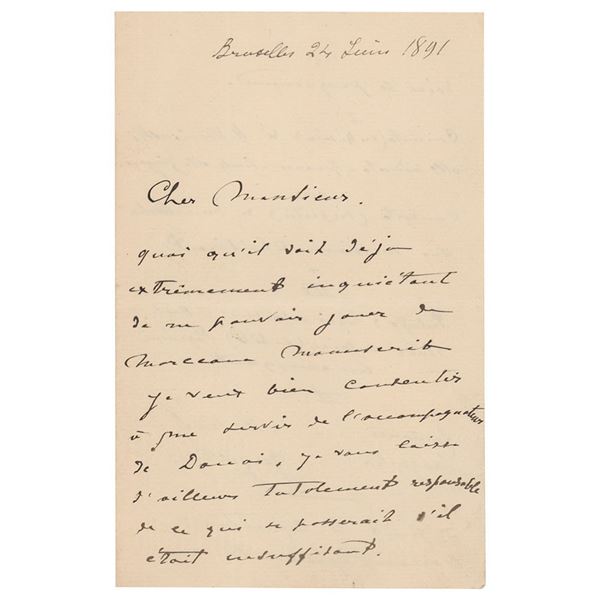 Bruxelles 24 Juin 1891
Cher Monsieur.
quoi qu'il soit déjà
extrêmement inquiétant
de ne pouvoir jouer de
morceaux manuscrits
je veux bien consentir
à me servir de l'accompagnateur
de Douai, je vous laisse
d'ailleurs totalement responsable
de ce qui se passerait s'il
était insuffisant.